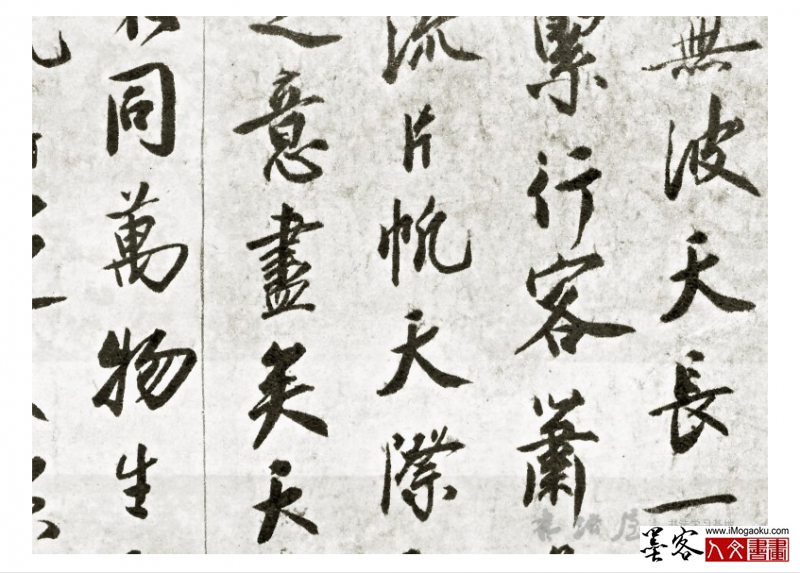 無波天長一
累行客蕭
流片帆天際
之意盡矣天
不同萬物生
墨客
www.iMogaoku.com
人文書畫